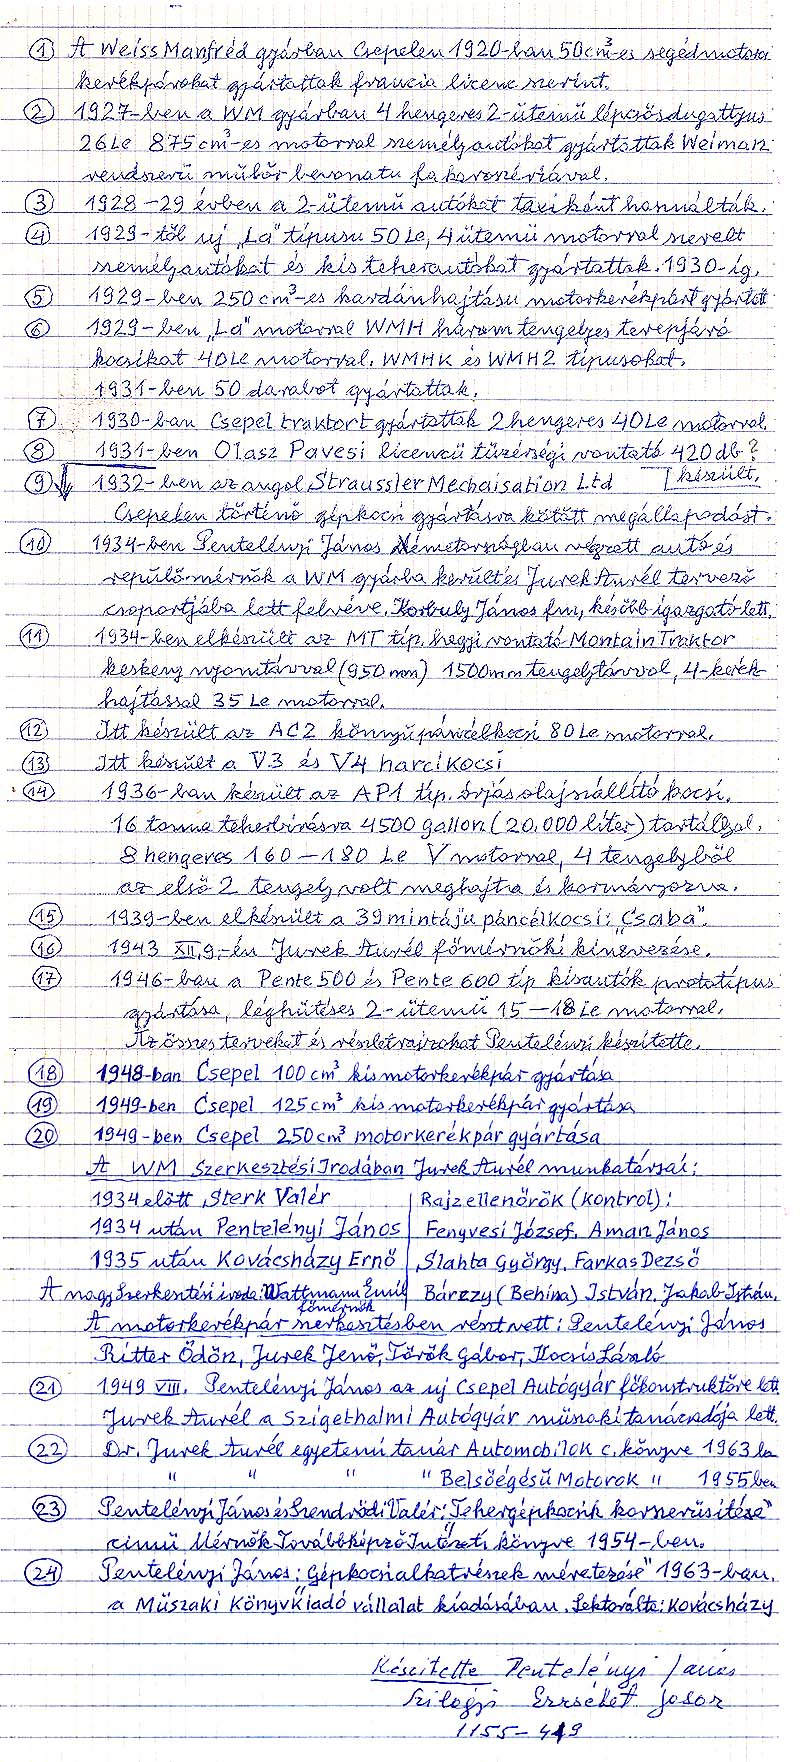 ① A Weiss Manfréd gyárban Csepelen 1920-ban 50cm³-es segédmotoros
kerékpárokat gyártattak francia licenc szerint.
② 1927-ben a WM gyárban 4 hengeres 2-ütemű lépcsősdugattyus
26Le 875cm³-es motorral személyautókat gyártottak Weimann
rendszerű műbőr bevonatu fakarszériával.
③ 1928-29 évben a 2-ütemű autókat taxiként használták.
④ 1929-től uj "La" típusu 50Le, 4ütemű motorral szerelt
személyautókat és kis teherautókat gyártattak. 1930-ig.
⑤ 1929-ben 250cm³-es kardánhajtásu motorkerékpárt gyártott
⑥ 1929-ben "La" motorral WMH három tengelyes terepjáró
kocsikat 40Le motorral. WMHK és WMH2 típusokat.
1931-ben 50 darabot gyártattak.
⑦ 1930-ban Csepel traktort gyártottak 2hengeres 40Le motorral.
⑧ 1931-ben Olasz Pavesi licencü tüzérségi vontató 420 db?
készült.
⑨ 1932-ben az angol Straussler Mechaisation Ltd
Csepelen történő gépkocsi gyártásra kötött megállapodást.
⑩ 1934-ben Pentelényi János Németországban végzett autó és
repülő-mérnök a WM gyárba került és Jurek Aurél tervező
csoportjába lett felvéve. Korbuly János fm, később igazgató lett.
⑪ 1934-ben elkészült az MT típ. hegyi vontató Montain Traktor
keskeny nyomtávval (950 mm) 1500mm tengelytávval, 4-kerék-
hajtással 35 Le motorral.
⑫ Itt készült az AC2 könnyűpáncélkocsi 80Le motorral.
⑬ Itt készült a V3 és V4 harcikocsi
⑭ 1936-ban készült az AP1 típ. óriás olajszállító kocsi.
16 tonna teherbírásra 4500 gallon (20.000 liter) tartállyal.
8 hengeres 160-180 Le V motorral, 4 tengelyből
az első 2 tengely volt meghajtva és kormányozva.
⑮ 1939-ben elkészült a 39 mintáju páncélkocsi: "Csaba".
⑯ 1943 XII, 9.-én Jurek Aurél főmérnöki kinevezése.
⑰ 1946-ban a Pente 500 és Pente 600 típ kisautók prototípus
gyártása, léghűtéses 2-ütemű 15-18Le motorral.
Az összes terveket és részletrajzokat Pentelényi készítette.
⑱ 1948-ban Csepel 100cm³ kis motorkerékpár gyártása
⑲ 1949-ben Csepel 125cm³ kis motorkerékpár gyártása
⑳ 1949-ben Csepel 250cm³ motorkerékpár gyártása
A WM Szerkesztési Irodában Jurek Aurél munkatársai:
1934 előtt Sterk Valér Rajzellenőrök (kontrol):
1934 után Pentelényi János Fenyvesi József, Aman János
1935 után Kovácsházy Ernő Slahta György, Farkas Dezső
A nagy Szerkesztési iroda: Wattmann Emil Bárczy (Behina) István, Jakab István,
főmérnök
A motorkerékpár szerkesztésben résztvett: Pentelényi János
Ritter Ödön, Jurek Jenő, Török Gábor, Kocsis László
㉑ 1949 VIII. Pentelényi János az uj Csepel Autógyár főkonstruktőre lett
Jurek Aurél a Szigethalmi Autógyár műszaki tanácsadója lett.
㉒ Dr. Jurek Aurél egyetemi tanár Automobilok c. könyve 1963 ban
" " " " Belsőégésű Motorok " 1955 ben
㉓ Pentelényi János és Szendrődi Valér: "Tehergépkocsik korszerűsítése"
című Mérnök Továbbképző Intézeti könyve 1954-ben.
㉔ Pentelényi János: "Gépkocsialkatrészek méretezése" 1963-ban.
a Műszaki Könyvkiadó vállalat kiadásában. Lektorálta: Kovácsházy
Készítette Pentelényi János
1155-419